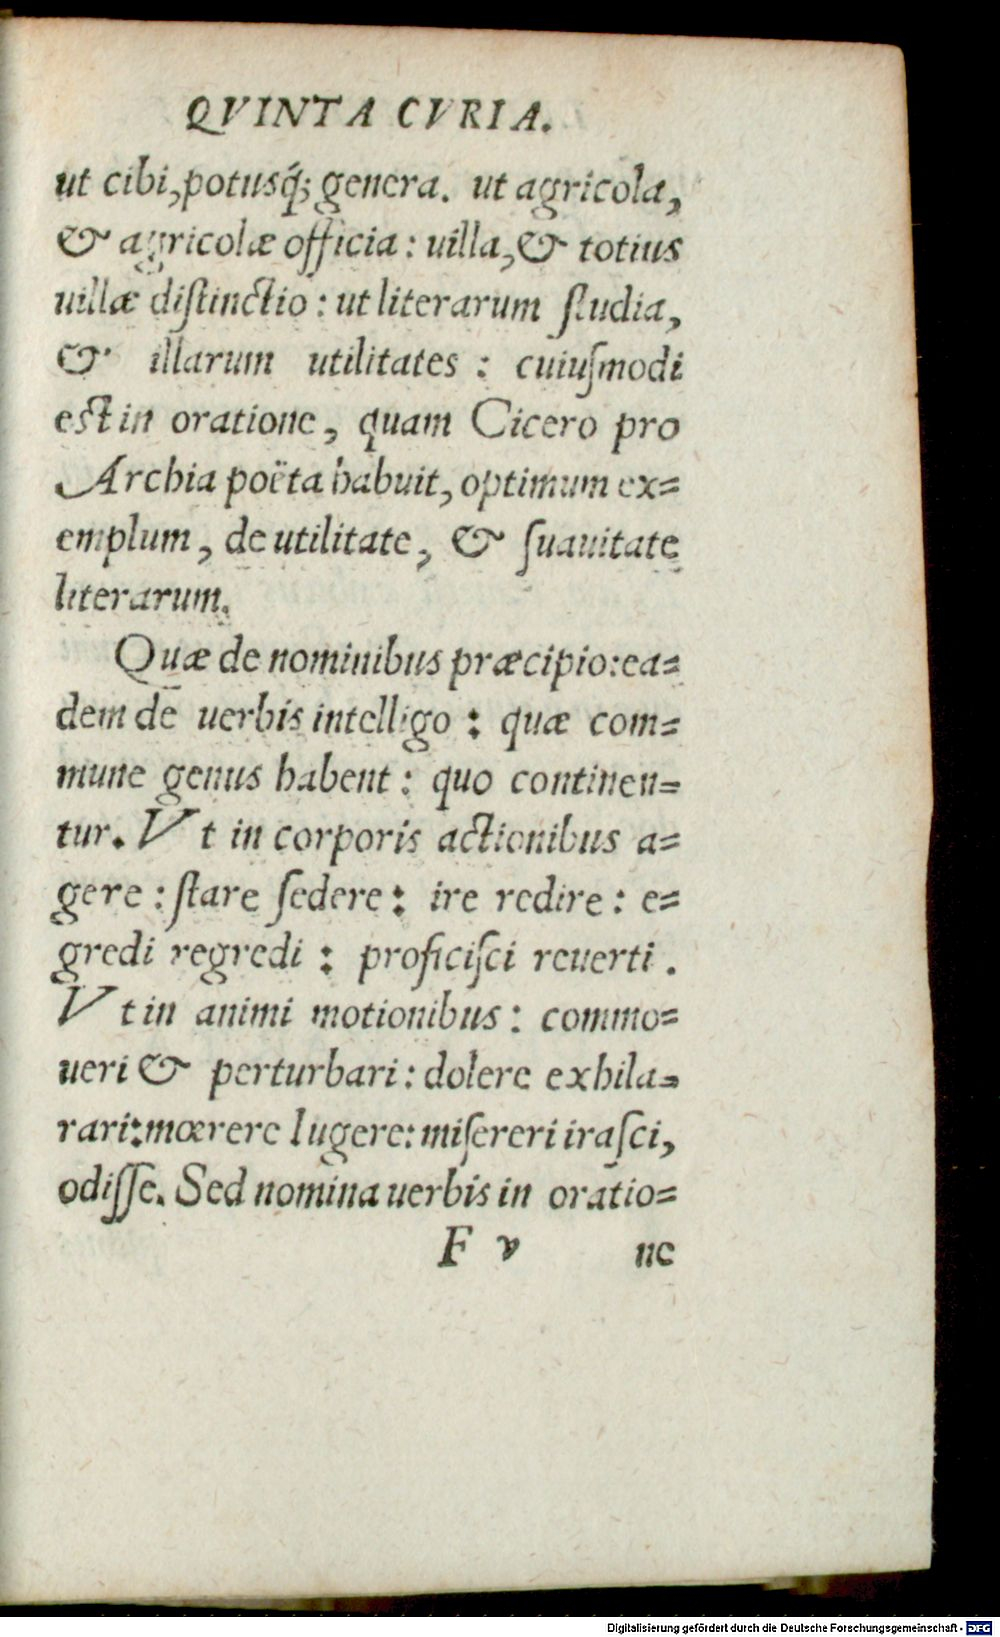 QVINTA CVRIA.
ut cibi, potusq́; genera. ut agricola,
& agricolæ officia: uilla, & totius
uillæ diſtinctio: ut literarum ſtudia,
& illarum utilitates: cuiuſmodi
est in oratione, quam Cicero pro
Archia poëta habuit, optimum ex=
emplum, de utilitate, & ſuauitate
literarum.
Quæ de nominibus præcipio: ea=
dem de uerbis intelligo: quæ com=
mune genus habent: quo continen=
tur. Vt in corporis actionibus a=
gere: ſtare ſedere: ire redire: e=
gredi regredi: proficiſci reuerti.
Vt in animi motionibus: commo=
ueri & perturbari: dolere exhila=
rari: mœrere lugere: miſereri iraſci,
odiſſe. Sed nomina uerbis in oratio=
F v ne
Digitalisierung gefördert durch die Deutsche Forschungsgemeinschaft - DFG